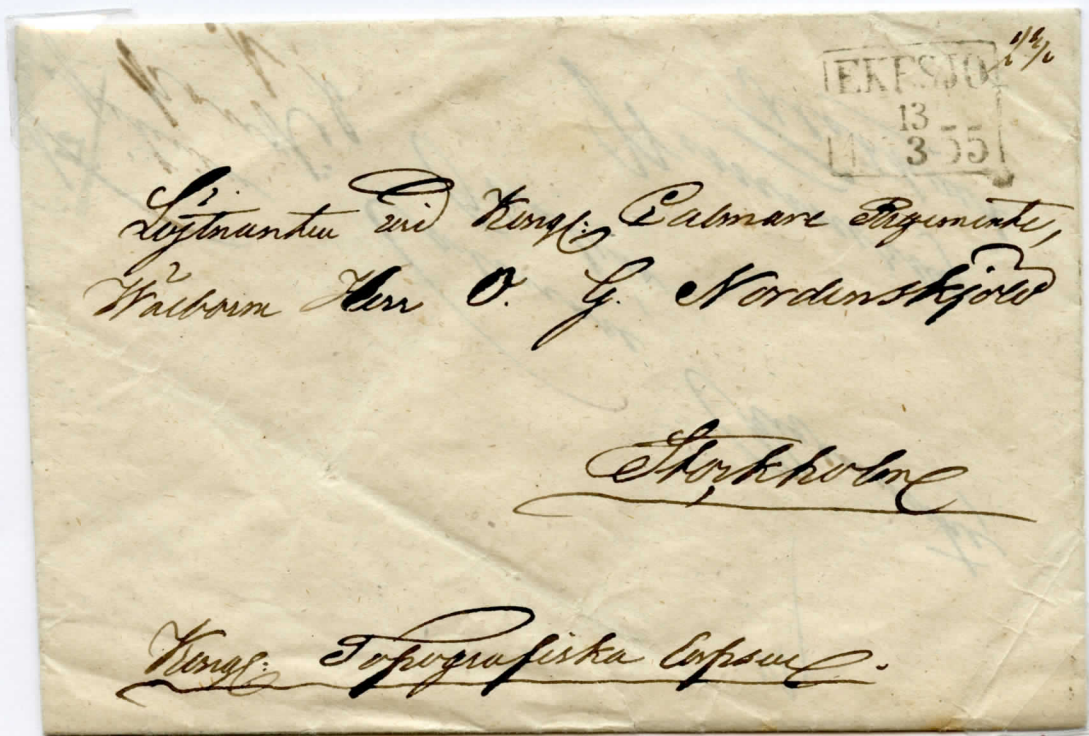 EKESJÖ
13
3 55
Löjtnanten vid Kongl: Calmare Regemente,
Wälborne Herr O. G. Nordenskjöld
Stockholm
Kongl: Topografiska Corpsen.